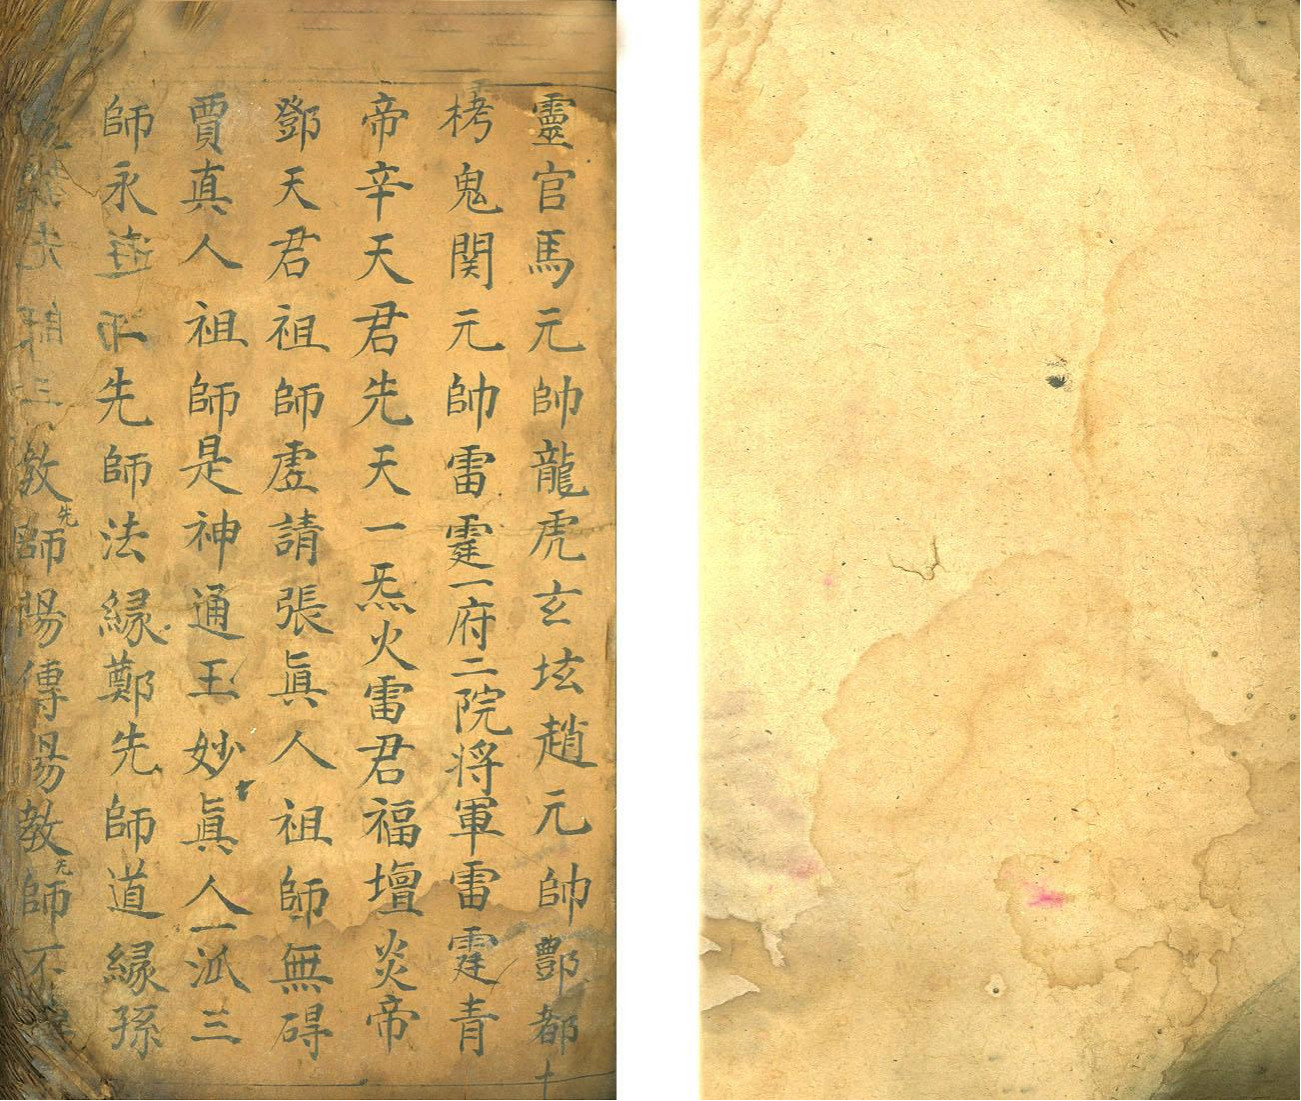 靈官馬元帥龍虎玄坛趙元帥酆都十
栲鬼関元帥雷霆一府二院将軍雷霆青
帝辛天君先天一炁火雷君福壇炎帝
鄧天君祖師虗請張眞人祖師無碍
賈真人祖師是神通王妙眞人一派三
師永先師法縁鄭先師道縁孫
三教先師陽傳揚教先師不